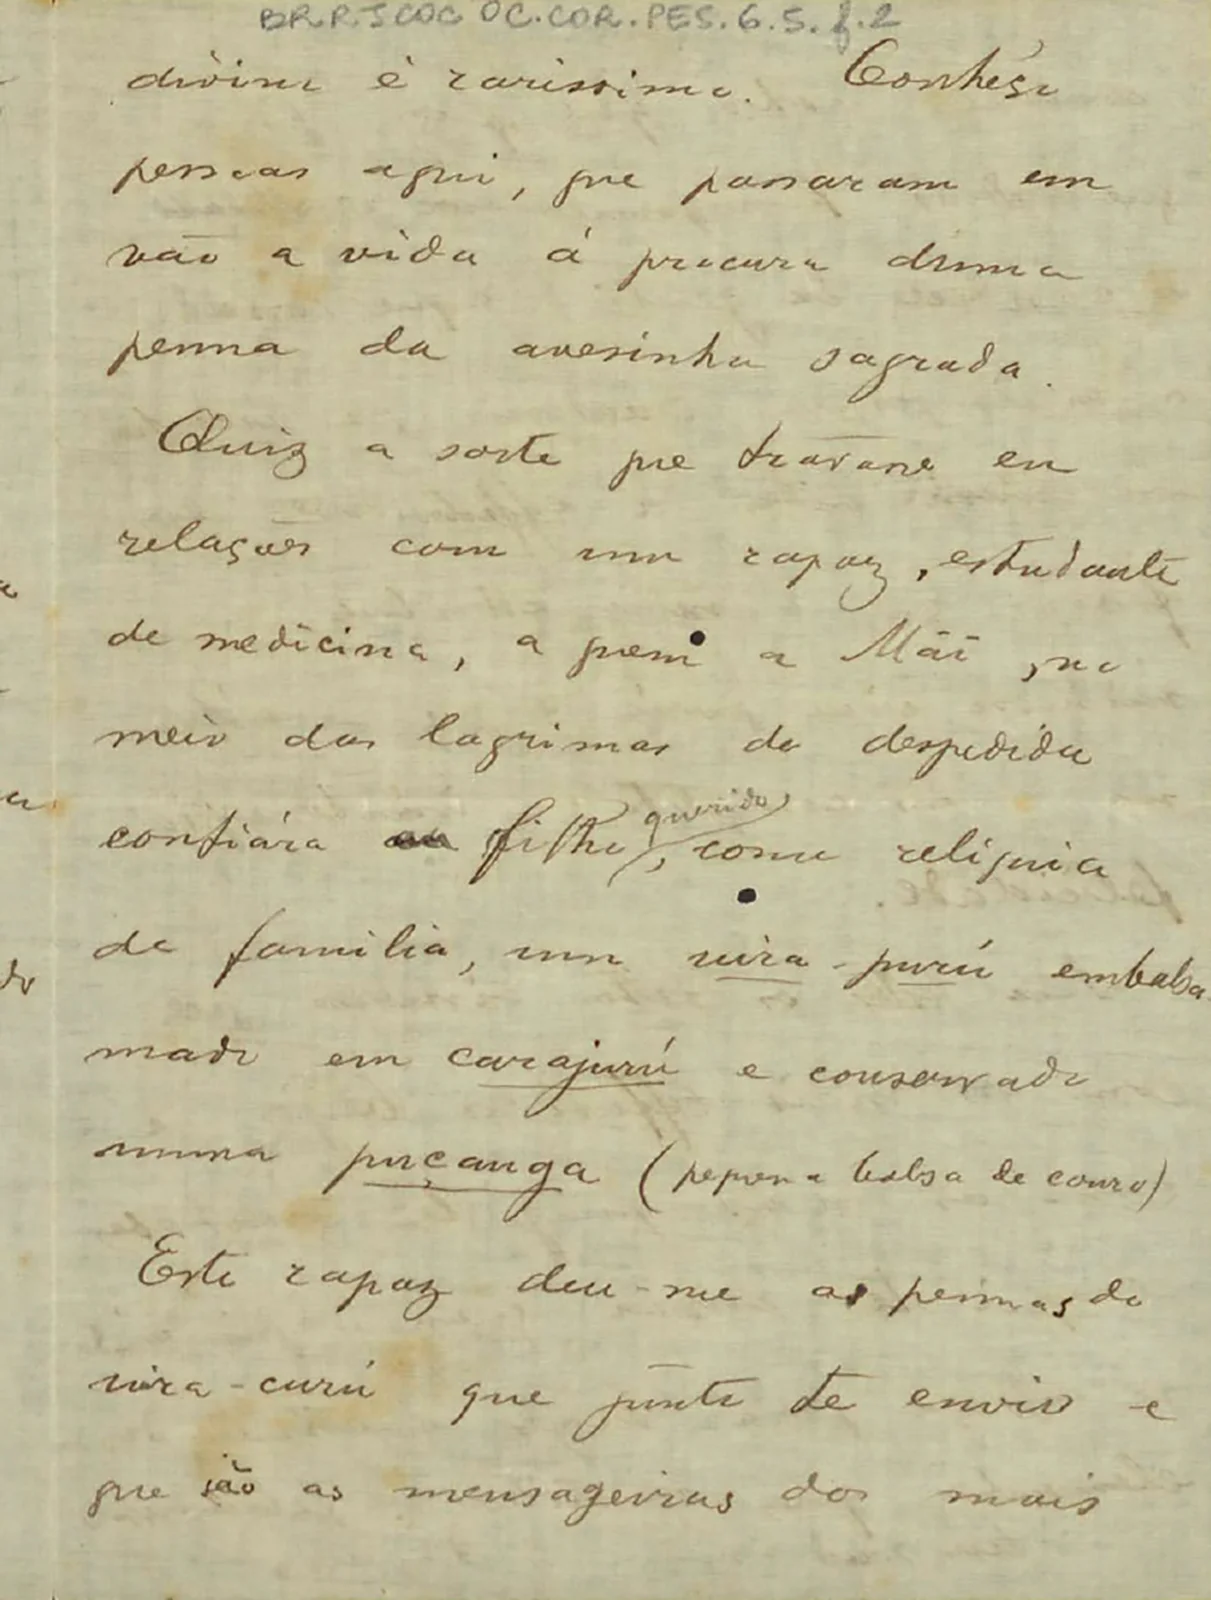 BR.RJCOC OC.COR.PES.6.5.f.2
divina é rarissima. Conhéço
pessoas aqui, que passaram em
vão a vida á procura duma
penna da avesinha sagrada.
Quiz a sorte que travasse eu
relações com um rapaz, estudante
de medicina, a quem a Mãi, no
meio das lagrimas da despedida
confiára ao filho querido, como reliquia
de familia, um uira-purú embalsa-
mado em carajurú e conservado
numa puçanga (pequena bolsa de couro)
Este rapaz deu-me as pennas do
uira-curú que junto te envio e
que são as mensageiras dos mais